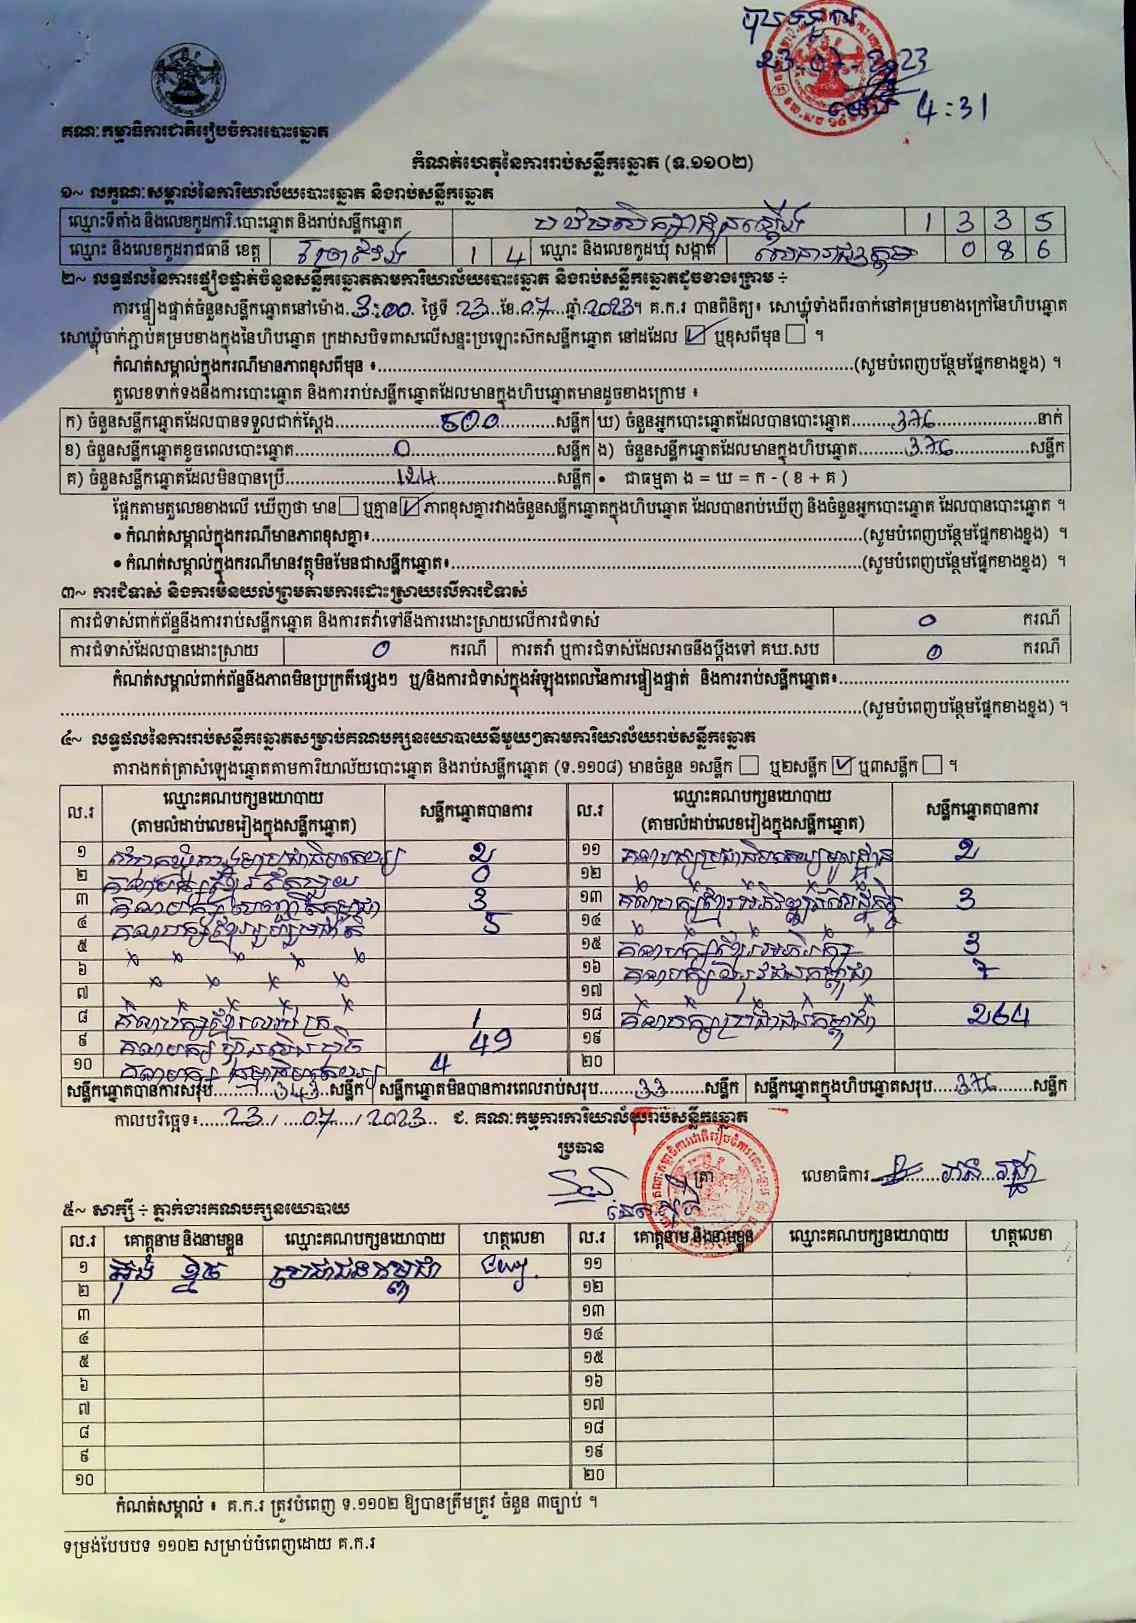 23-07-2023
4:31
គណៈកម្មាធិការជាតិរៀបចំការបោះឆ្នោត
កំណត់ហេតុនៃការរាប់សន្លឹកឆ្នោត (ទ.១១០២)
១~ លក្ខណៈសម្គាល់នៃការិយាល័យបោះឆ្នោត និងរាប់សន្លឹកឆ្នោត
ឈ្មោះទីតាំង និងលេខកូដការិ.បោះឆ្នោត និងរាប់សន្លឹកឆ្នោត 1 3 3 5
ឈ្មោះ និងលេខកូដរាជធានី ខេត្ត ព្រៃវែង 1 4 ឈ្មោះ និងលេខកូដឃុំ សង្កាត់ 0 8 6
២~ លទ្ធផលនៃការផ្ទៀងផ្ទាត់ចំនួនសន្លឹកឆ្នោតតាមការិយាល័យបោះឆ្នោត និងរាប់សន្លឹកឆ្នោតដូចខាងក្រោម ÷
ការផ្ទៀងផ្ទាត់ចំនួនសន្លឹកឆ្នោតនៅម៉ោង.3:00. ថ្ងៃទី .23...ខែ.07...ឆ្នាំ.2023។ គ.ក.រ បានពិនិត្យ៖ សោឃ្លុំទាំងពីរចាក់នៅគម្របខាងក្រៅនៃហិបឆ្នោត
សោឃ្លុំចាក់ភ្ជាប់គម្របខាងក្នុងនៃហិបឆ្នោត ក្រដាសបិទពាសលើសន្ទះប្រឡោះសិកសន្លឹកឆ្នោត នៅដដែល ☑ ឬខុសពីមុន ☐ ។
កំណត់សម្គាល់ក្នុងករណីមានភាពខុសពីមុន ៖......(សូមបំពេញបន្ថែមផ្នែកខាងខ្នង) ។
តួលេខទាក់ទងនឹងការបោះឆ្នោត និងការរាប់សន្លឹកឆ្នោតដែលមានក្នុងហិបឆ្នោតមានដូចខាងក្រោម ៖
ក) ចំនួនសន្លឹកឆ្នោតដែលបានទទួលជាក់ស្ដែង......500......សន្លឹក ឃ) ចំនួនអ្នកបោះឆ្នោតដែលបានបោះឆ្នោត......376......នាក់
ខ) ចំនួនសន្លឹកឆ្នោតខូចពេលបោះឆ្នោត......0......សន្លឹក ង) ចំនួនសន្លឹកឆ្នោតដែលមានក្នុងហិបឆ្នោត......376......សន្លឹក
គ) ចំនួនសន្លឹកឆ្នោតដែលមិនបានប្រើ......124......សន្លឹក • ជាធម្មតា ង = ឃ = ក - ( ខ + គ )
ផ្អែកតាមតួលេខខាងលើ ឃើញថា មាន ☐ ឬគ្មាន ☑ ភាពខុសគ្នារវាងចំនួនសន្លឹកឆ្នោតក្នុងហិបឆ្នោត ដែលបានរាប់ឃើញ និងចំនួនអ្នកបោះឆ្នោត ដែលបានបោះឆ្នោត ។
• កំណត់សម្គាល់ក្នុងករណីមានភាពខុសគ្នា៖......(សូមបំពេញបន្ថែមផ្នែកខាងខ្នង) ។
• កំណត់សម្គាល់ក្នុងករណីមានវត្ថុមិនមែនជាសន្លឹកឆ្នោត៖......(សូមបំពេញបន្ថែមផ្នែកខាងខ្នង) ។
៣~ ការជំទាស់ និងការមិនយល់ព្រមតាមការដោះស្រាយលើការជំទាស់
ការជំទាស់ពាក់ព័ន្ធនឹងការរាប់សន្លឹកឆ្នោត និងការតវ៉ាទៅនឹងការដោះស្រាយលើការជំទាស់ 0 ករណី
ការជំទាស់ដែលបានដោះស្រាយ 0 ករណី ការតវ៉ា ឬការជំទាស់ដែលអាចនឹងប្ដឹងទៅ គឃ.សប 0 ករណី
កំណត់សម្គាល់ពាក់ព័ន្ធនឹងភាពមិនប្រក្រតីផ្សេងៗ ឬ/និងការជំទាស់ក្នុងអំឡុងពេលនៃការផ្ទៀងផ្ទាត់ និងការរាប់សន្លឹកឆ្នោត៖......
......(សូមបំពេញបន្ថែមផ្នែកខាងខ្នង) ។
៤~ លទ្ធផលនៃការរាប់សន្លឹកឆ្នោតសម្រាប់គណបក្សនយោបាយនីមួយៗតាមការិយាល័យរាប់សន្លឹកឆ្នោត
តារាងកត់ត្រាសំឡេងឆ្នោតតាមការិយាល័យបោះឆ្នោត និងរាប់សន្លឹកឆ្នោត (ទ.១១០៨) មានចំនួន ១សន្លឹក ☐ ឬ២សន្លឹក ☑ ឬ៣សន្លឹក ☐ ។
ល.រ ឈ្មោះគណបក្សនយោបាយ (តាមលំដាប់លេខរៀងក្នុងសន្លឹកឆ្នោត) សន្លឹកឆ្នោតបានការ ល.រ ឈ្មោះគណបក្សនយោបាយ (តាមលំដាប់លេខរៀងក្នុងសន្លឹកឆ្នោត) សន្លឹកឆ្នោតបានការ
១ 2 ១១ គណបក្សប្រជាធិបតេយ្យមូលដ្ឋាន 2
២ 0 ១២
៣ 3 ១៣ គណបក្សខ្មែរអភិវឌ្ឍន៍សេដ្ឋកិច្ច 3
៤ គណបក្សខ្មែររួបរួមជាតិ 5 ១៤
៥ ១៥ 3
៦ ១៦ 7
៧ ១៧
៨ 1 ១៨ គណបក្សប្រជាជនកម្ពុជា 264
៩ គណបក្សហ៊្វុនស៊ិនប៉ិច 49 ១៩
១០ 4 ២០
សន្លឹកឆ្នោតបានការសរុប......343...សន្លឹក សន្លឹកឆ្នោតមិនបានការពេលរាប់សរុប......33......សន្លឹក សន្លឹកឆ្នោតក្នុងហិបឆ្នោតសរុប....376......សន្លឹក
កាលបរិច្ឆេទ៖......23./....07..../..2023.. ជ. គណៈកម្មការការិយាល័យរាប់សន្លឹកឆ្នោត
ប្រធាន
ត្រា
លេខាធិការ
៥~ សាក្សី ÷ ភ្នាក់ងារគណបក្សនយោបាយ
ល.រ គោត្តនាម និងនាមខ្លួន ឈ្មោះគណបក្សនយោបាយ ហត្ថលេខា ល.រ គោត្តនាម និងនាមខ្លួន ឈ្មោះគណបក្សនយោបាយ ហត្ថលេខា
១ ប្រជាជនកម្ពុជា ១១
២ ១២
៣ ១៣
៤ ១៤
៥ ១៥
៦ ១៦
៧ ១៧
៨ ១៨
៩ ១៩
១០ ២០
កំណត់សម្គាល់ ៖ គ.ក.រ ត្រូវបំពេញ ទ.១១០២ ឱ្យបានត្រឹមត្រូវ ចំនួន ៣ច្បាប់ ។
ទម្រង់បែបបទ ១១០២ សម្រាប់បំពេញដោយ គ.ក.រ